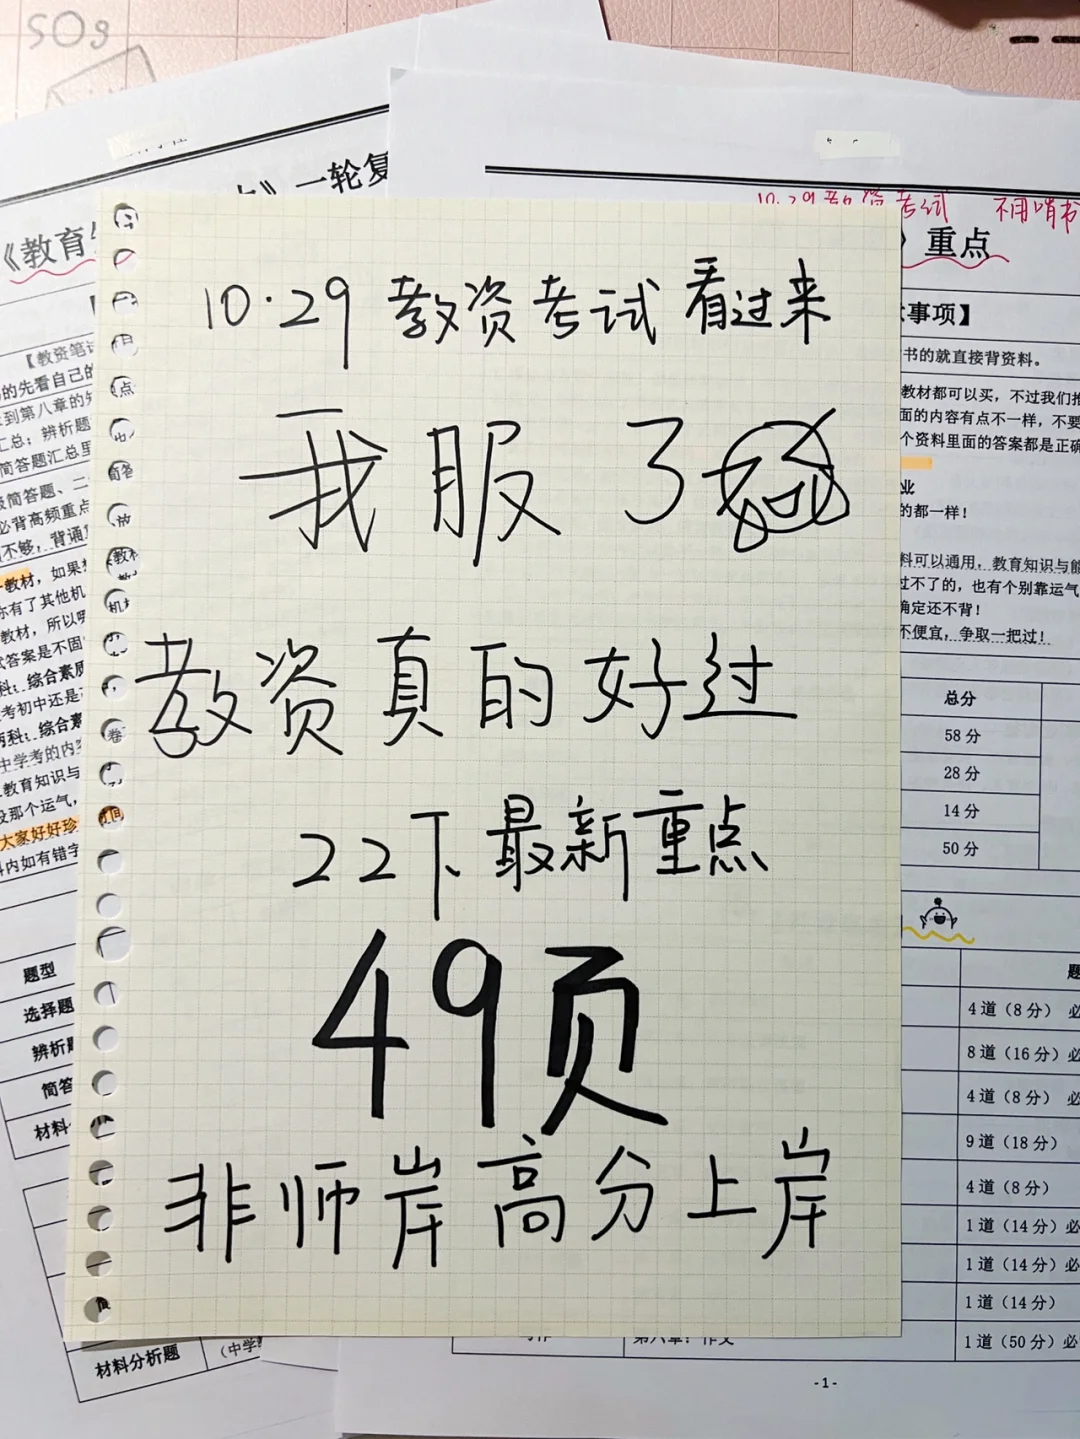 SOS
》一轮复
《教育
10.29教资考试 不用啃书
》重点
10.29 教资考试 看过来
我服了
教资真的好过
22下最新重点
49页
非师岸高分上岸
【教资笔试
的先看自己的
到第八章的知
汇总；辨析题
简答题汇总里
简答题、二
必背高频重点
不够，背诵
教材，如果
你有了其他机
教材，所以
试答案是不固
科：综合素质
考初中还是
两科：综合素
中学考的内
教育知识与
没那个运气，
大家好好珍
料内如有错字
题型
选择题
辨析题
简答
材料
材料分析题
（中学
事项】
书的就直接背资料。
教材都可以买，不过我们推
面的内容有点不一样，不要
个资料里面的答案都是正确
业
的都一样！
料可以通用，教育知识与能
过不了的，也有个别靠运气
确定还不背！
不便宜，争取一把过！
总分
58分
28分
14分
50分
题
4道（8分） 必
8道（16分）必
4道（8分） 必
9道（18分）
4道（8分）
1道（14分）必
1道（14分）必
1道（14分）
第八章：作文
1道（50分）必
-1-